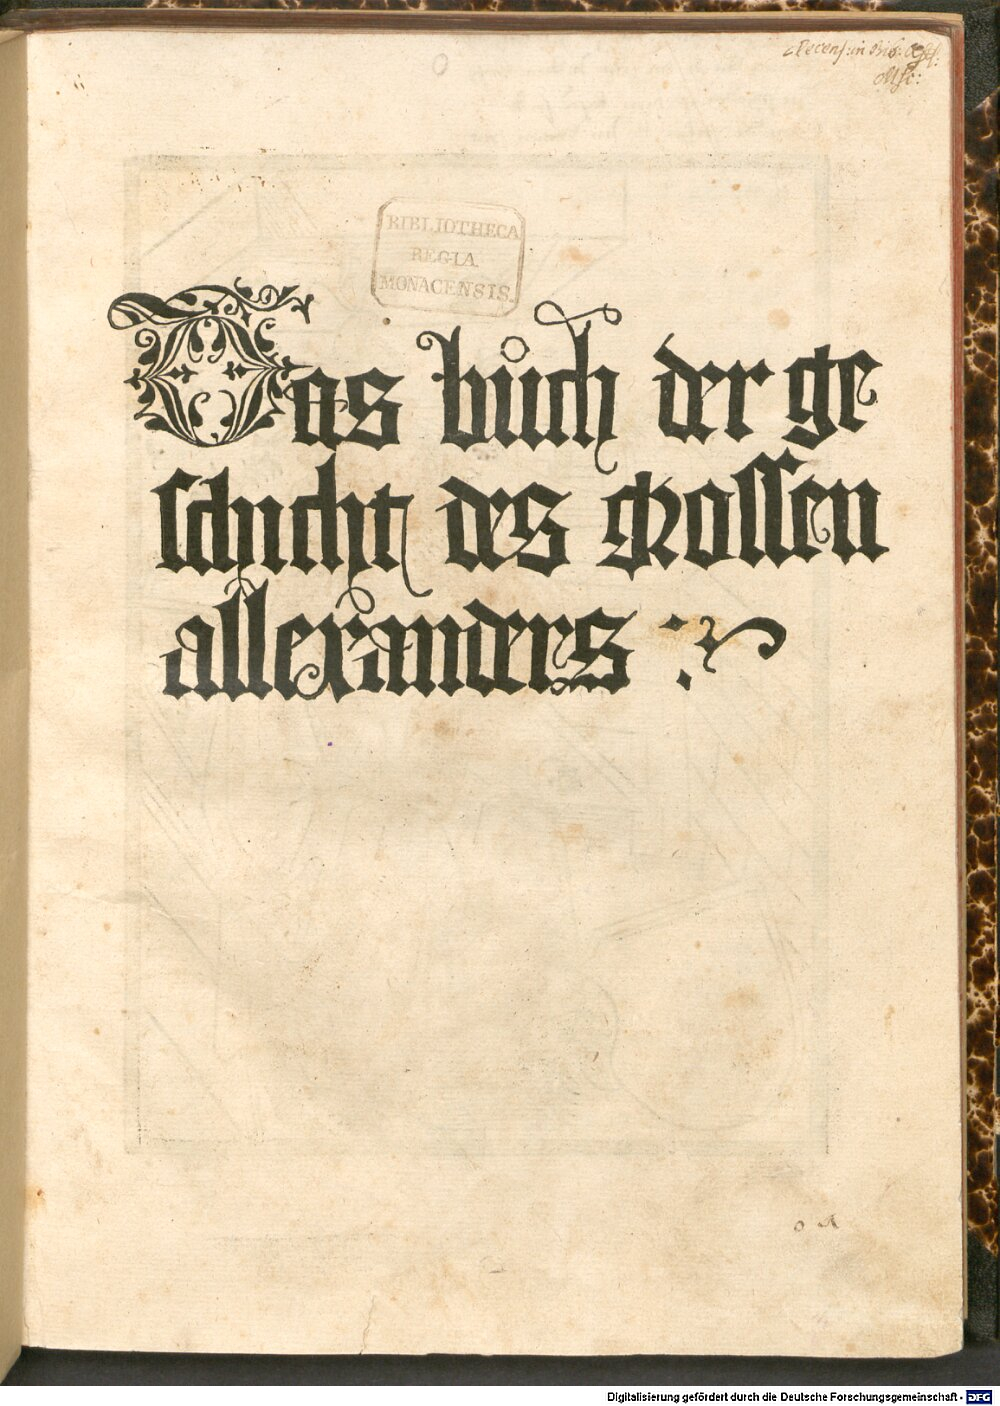 BIBLIOTHECA
REGIA
MONACENSIS.
Das bůch der ge
schicht des Grossen
allexanders
Digitalisierung gefördert durch die Deutsche Forschungsgemeinschaft - DFG